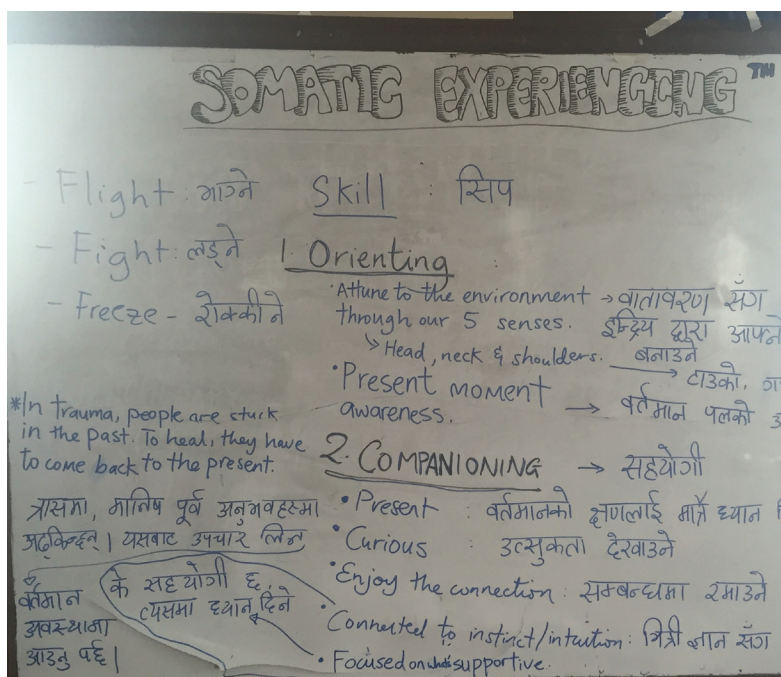 SOMATIC EXPERIENCING TM
- Flight : भाग्ने
- Fight : लड्ने
- Freeze - रोक्कीने
*In trauma, people are stuck
in the past. To heal, they have
to come back to the present.
त्रासमा, मानिष पूर्व अनुभवहरुमा
अड्किन्छन् । यसबाट उपचार लिन
वर्तमान
अवस्थामा
आउनु पर्छ ।
Skill : सिप
1. Orienting
• Attune to the environment → वातावरण सँग
through our 5 senses. इन्द्रिय द्वारा आफ्नो
बनाउने
↳ Head, neck & shoulders. → टाउको,
• Present moment
awareness. → वर्तमान पलको
2. COMPANIONING → सहयोगी
• Present : वर्तमानको क्षणलाई मात्रै ध्यान
• Curious : उत्सुकता देखाउने
• Enjoy the connection : सम्बन्धमा रमाउने
• Connected to instinct/intuition : भित्री ज्ञान सँग
• Focused on what's supportive.
के सहयोगी छ,
त्यसमा ध्यान दिने